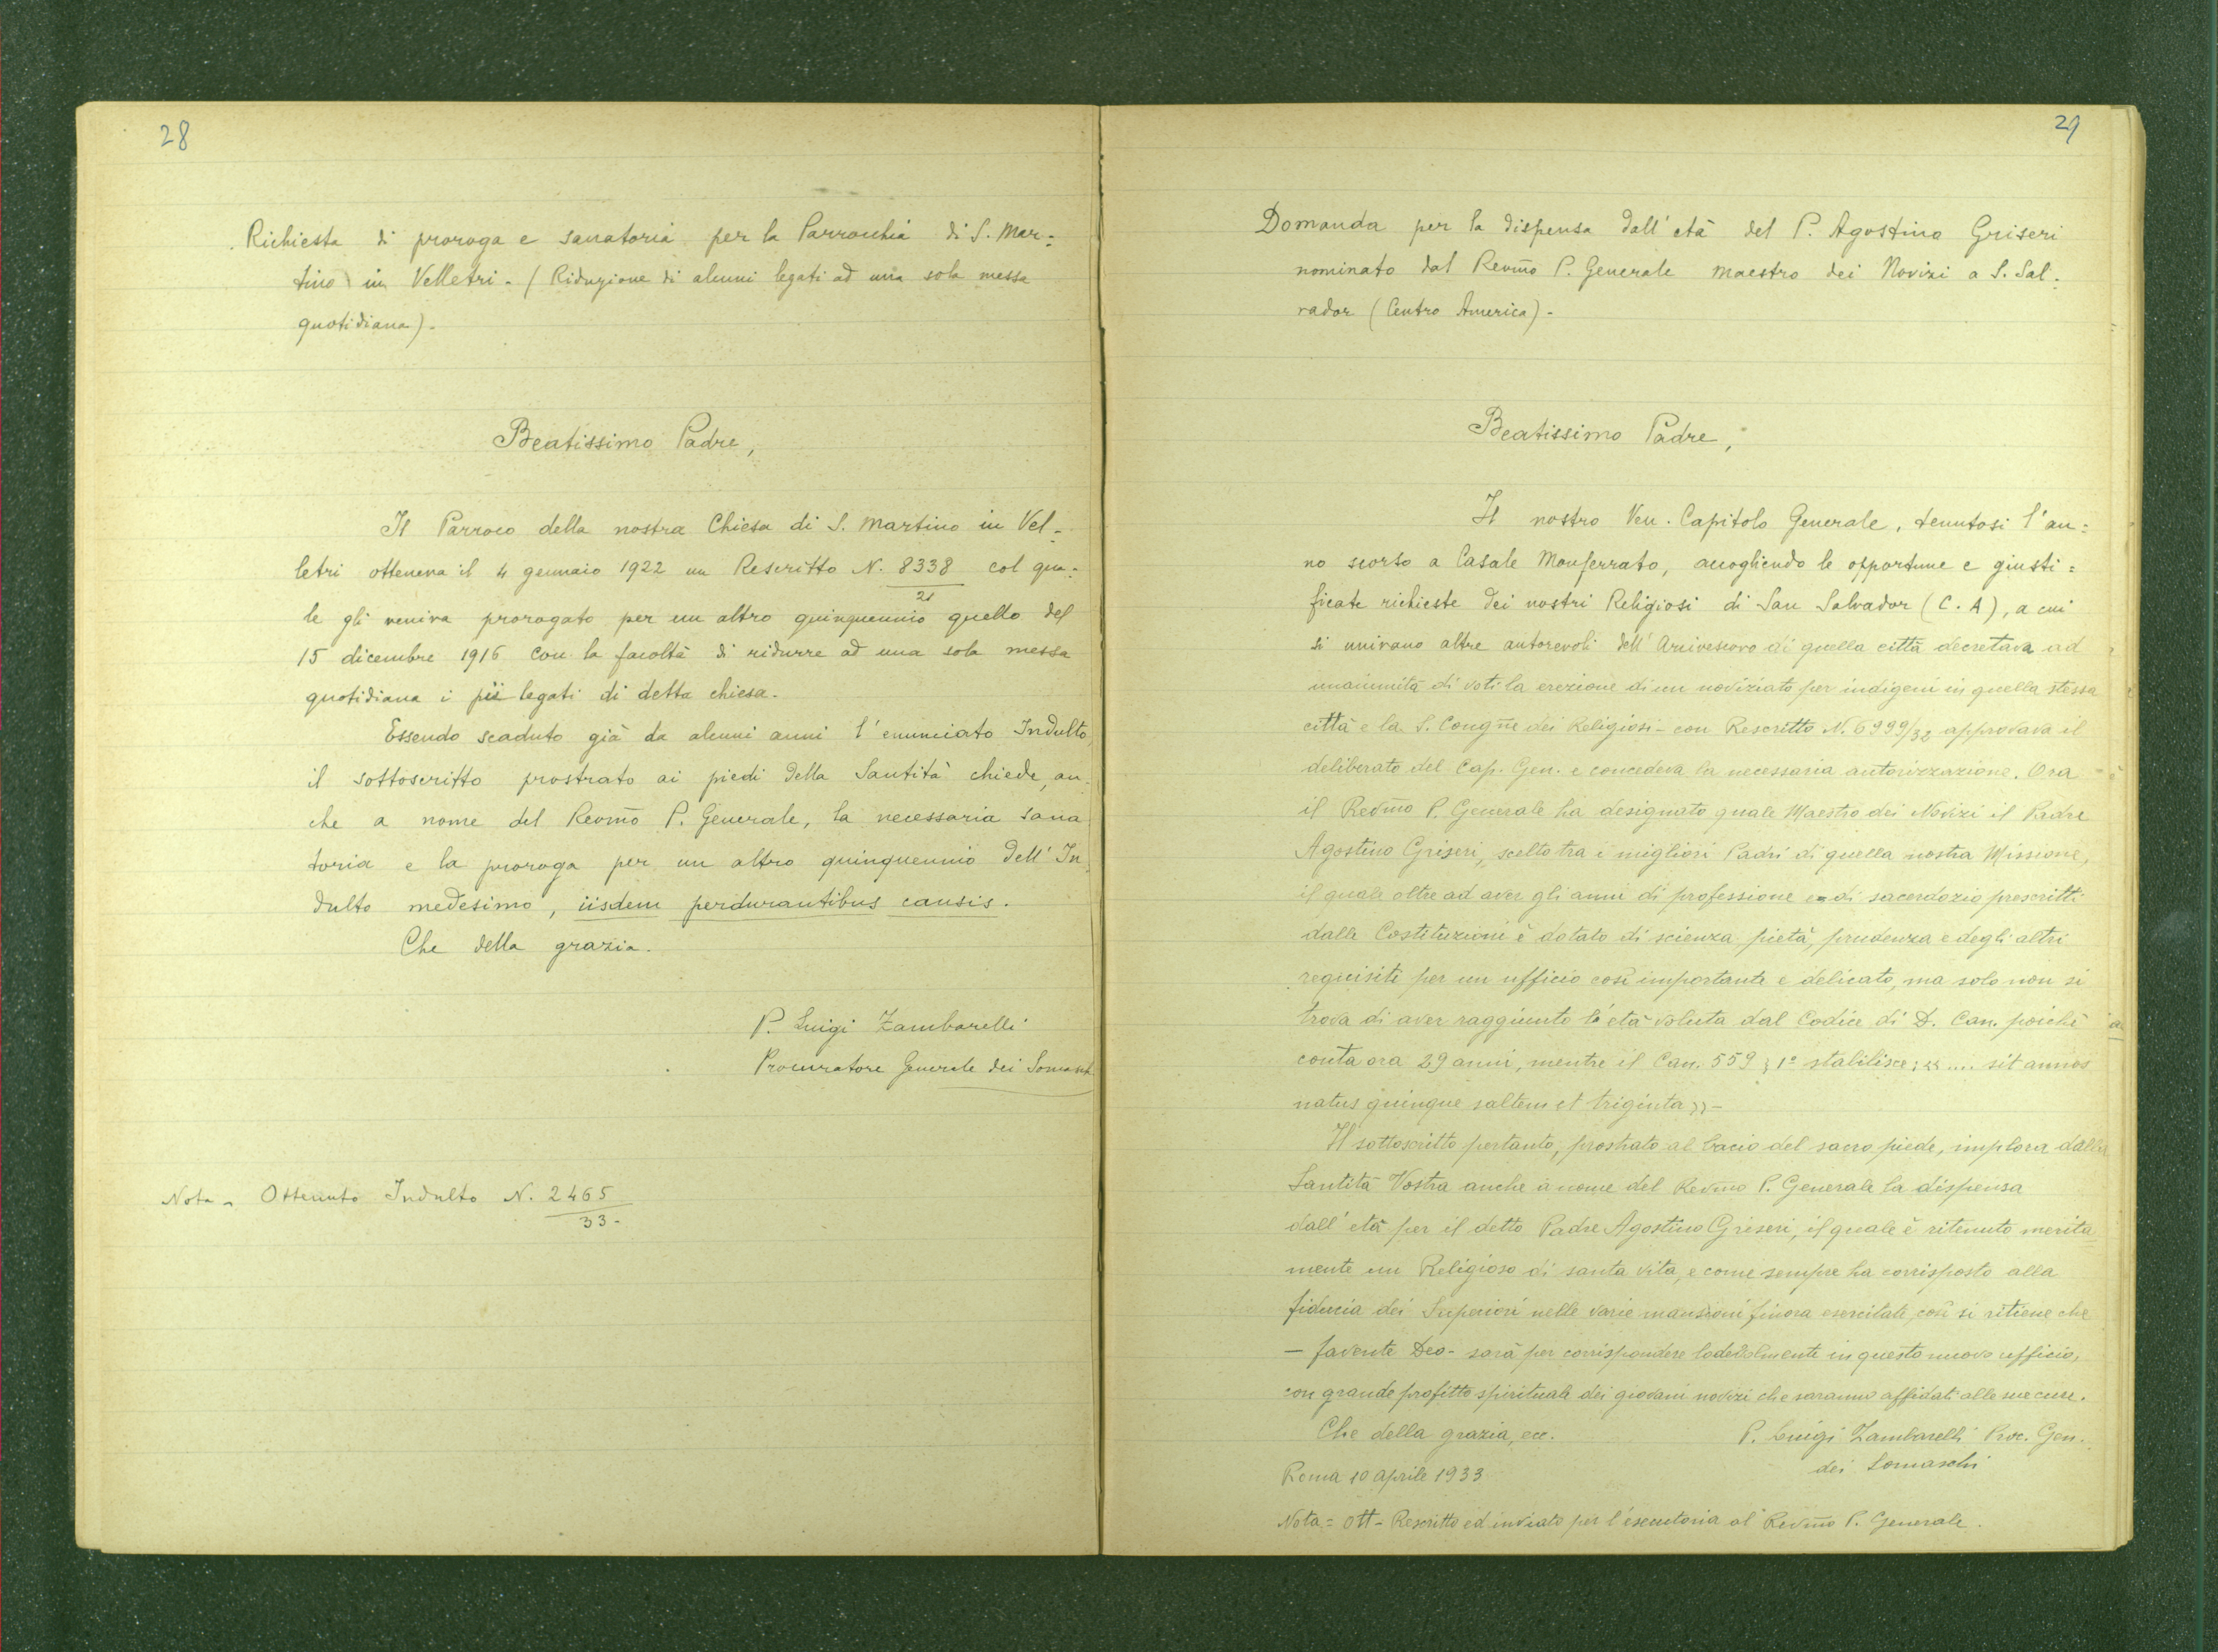 28
Richiesta di proroga e sanatoria per la Parrochia di S. Mar=
tino in Velletri - (Riduzione di alcuni legati ad una sola messa
quotidiana) -
Beatissimo Padre,
Il Parroco della nostra Chiesa di S. Martino in Vel-
letri otteneva il 4 gennaio 1922 un Rescritto N. 8338 col qua=
21
le gli veniva prorogato per un altro quinquennio quello del
15 dicembre 1916 con la facoltà di ridurre ad una sola messa
quotidiana i pii legati di detta chiesa.
Essendo scaduto già da alcuni anni l'enunciato Indulto,
il sottoscritto prostrato ai piedi della Santità chiede, an-
che a nome del Revmo P. Generale, la necessaria sana
toria e la proroga per un altro quinquennio dell'In
dulto medesimo, iisdem perdurantibus causis.
Che della grazia.
P. Luigi Zambarelli
Procuratore Generale dei Somasch
Nota - Ottenuto Indulto N. 2465
33 -
29
Domanda per la dispensa dall'età del P. Agostino Griseri
nominato dal Revmo P. Generale maestro dei Novizi a S. Sal-
vador (Centro America) -
Beatissimo Padre,
Il nostro Ven. Capitolo Generale, tenutosi l'an=
no scorso a Casale Monferrato, accogliendo le opportune e giusti=
ficate richieste dei nostri Religiosi di San Salvador (C. A), a cui
si univano altre autorevoli dell'Arcivescovo di quella città decretava ad
unanimità di voti la erezione di un noviziato per indigeni in quella stessa
città e la S. Congne dei Religiosi - con Rescritto N. 6999/32 approvava il
deliberato del Cap. Gen. e concedeva la necessaria autorizzazione. Ora
il Revmo P. Generale ha designato quale Maestro dei Novizi il Padre
Agostino Griseri, scelto tra i migliori Padri di quella nostra Missione,
il quale oltre ad aver gli anni di professione e di sacerdozio prescritti
dalle Costituzioni è dotato di scienza, pietà, prudenza e degli altri
requisiti per un ufficio così importante e delicato, ma solo non si
trova di aver raggiunto l'età voluta dal Codice di D. Can. poichè
conta ora 29 anni, mentre il Can. 559 § 1º stabilisce: « .... sit annos
natus quinque saltem et triginta » -
Il sottoscritto pertanto, prostrato al bacio del sacro piede, implora dalla
Santità Vostra anche a nome del Revmo P. Generale la dispensa
dall'età per il detto Padre Agostino Griseri, il quale è ritenuto merita
mente un Religioso di santa vita, e come sempre ha corrisposto alla
fiducia dei Superiori nelle varie mansioni finora esercitate, così si ritiene che
- favente Deo - sarà per corrispondere lodevolmente in questo nuovo ufficio,
con grande profitto spirituale dei giovani novizi che saranno affidati alle sue cure.
Che della grazia, ecc.
P. Luigi Zambarelli Proc. Gen.
dei Somaschi
Roma 10 aprile 1933
Nota = Ott - Rescritto ed inviato per l'esecutoria al Revmo P. Generale.